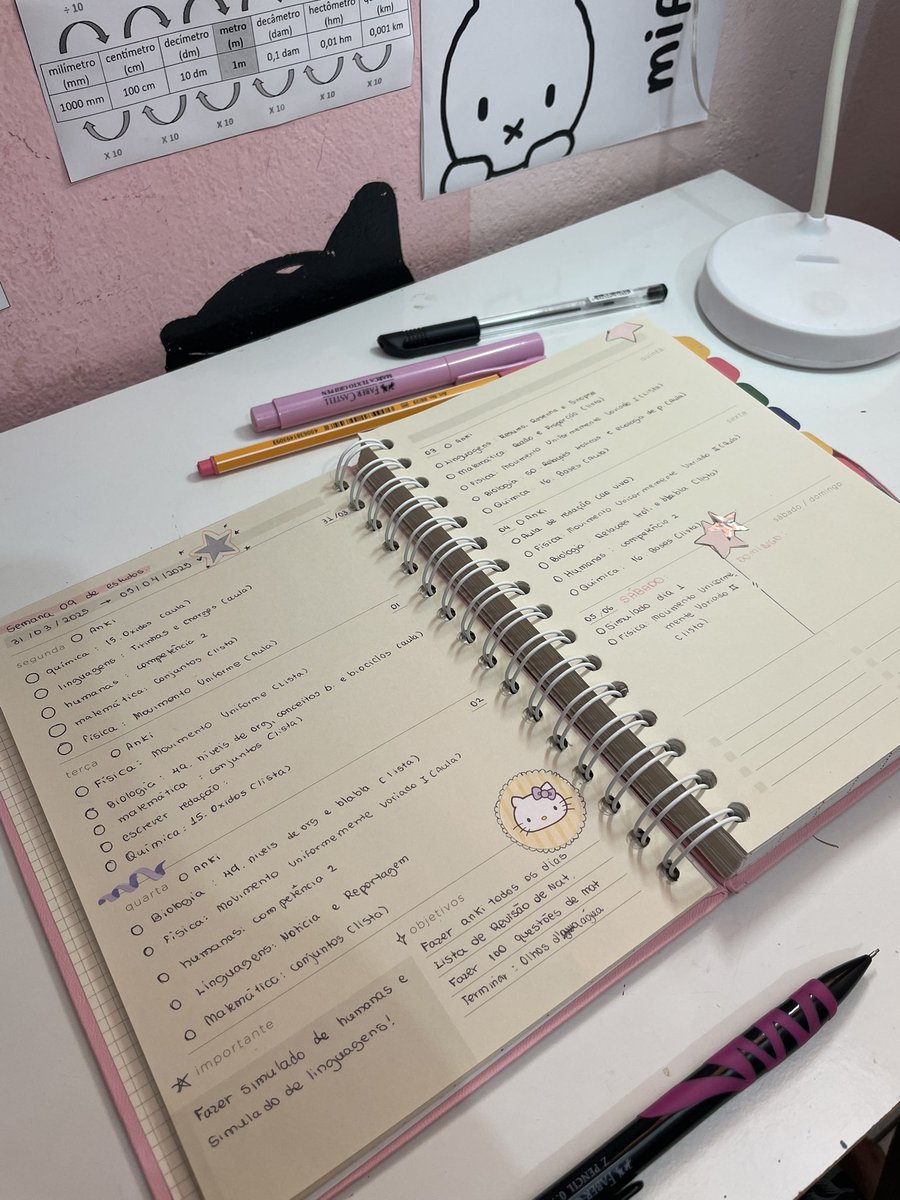 ÷ 10
milímetro (mm) centímetro (cm) decímetro (dm) metro (m) decâmetro (dam) hectômetro (hm) (km)
1000 mm 100 cm 10 dm 1m 0,1 dam 0,01 hm 0,001 km
X 10 X 10 X 10 X 10 X 10 X 10
mif
FABER CASTELL
MARCA TEXTO GRIFPEN
Semana 09 de estudos:
31/03/2025 → 05/04/2025
31/03
segunda
Anki
química: 15. Óxidos (aula)
linguagens: Tirinhas e charges (aula)
humanas: competência 2
matemática: conjuntos (lista)
física: Movimento Uniforme (Aula)
01
terça
Anki
Física: Movimento Uniforme (Lista)
Biologia: 4a. níveis de org, conceitos b. e biociclos (aula)
matemática: conjuntos (lista)
escrever redação:
Química: 15. Óxidos (lista)
02
quarta
Anki
Biologia: 4a. níveis de org e blabla (lista)
Física: Movimento uniformemente variado I (Aula)
humanas: competência 2
Linguagens: Notícia e Reportagem
Matemática: conjuntos (lista)
importante
Fazer simulado de humanas e
simulado de linguagens!
objetivos
Fazer anki todos os dias
Lista de Revisão de Nat.
Fazer 100 questões de mat
Terminar: Olhos d'água
quinta
03 Anki
Linguagens: Resumo, Resenha e Sinopse
Matemática: Razão e Proporção (lista)
Física: Movimento Uniformemente Variado I (Lista)
Biologia: 50. Relações tróficas e ecologia de p. (Aula)
Química: 16. Bases (Aula)
sexta
04 Anki
Aula de redação (ao vivo)
Física: Movimento Uniformemente Variado II (Aula)
Biologia: Relações trof. e blabla (lista)
Humanas: competência 2
Química: 16 Bases (lista)
sábado / domingo
05/06 SÁBADO:
Simulado dia 1
Física: Movimento Uniforme
mente Variado II
(lista)
Z PENCIL